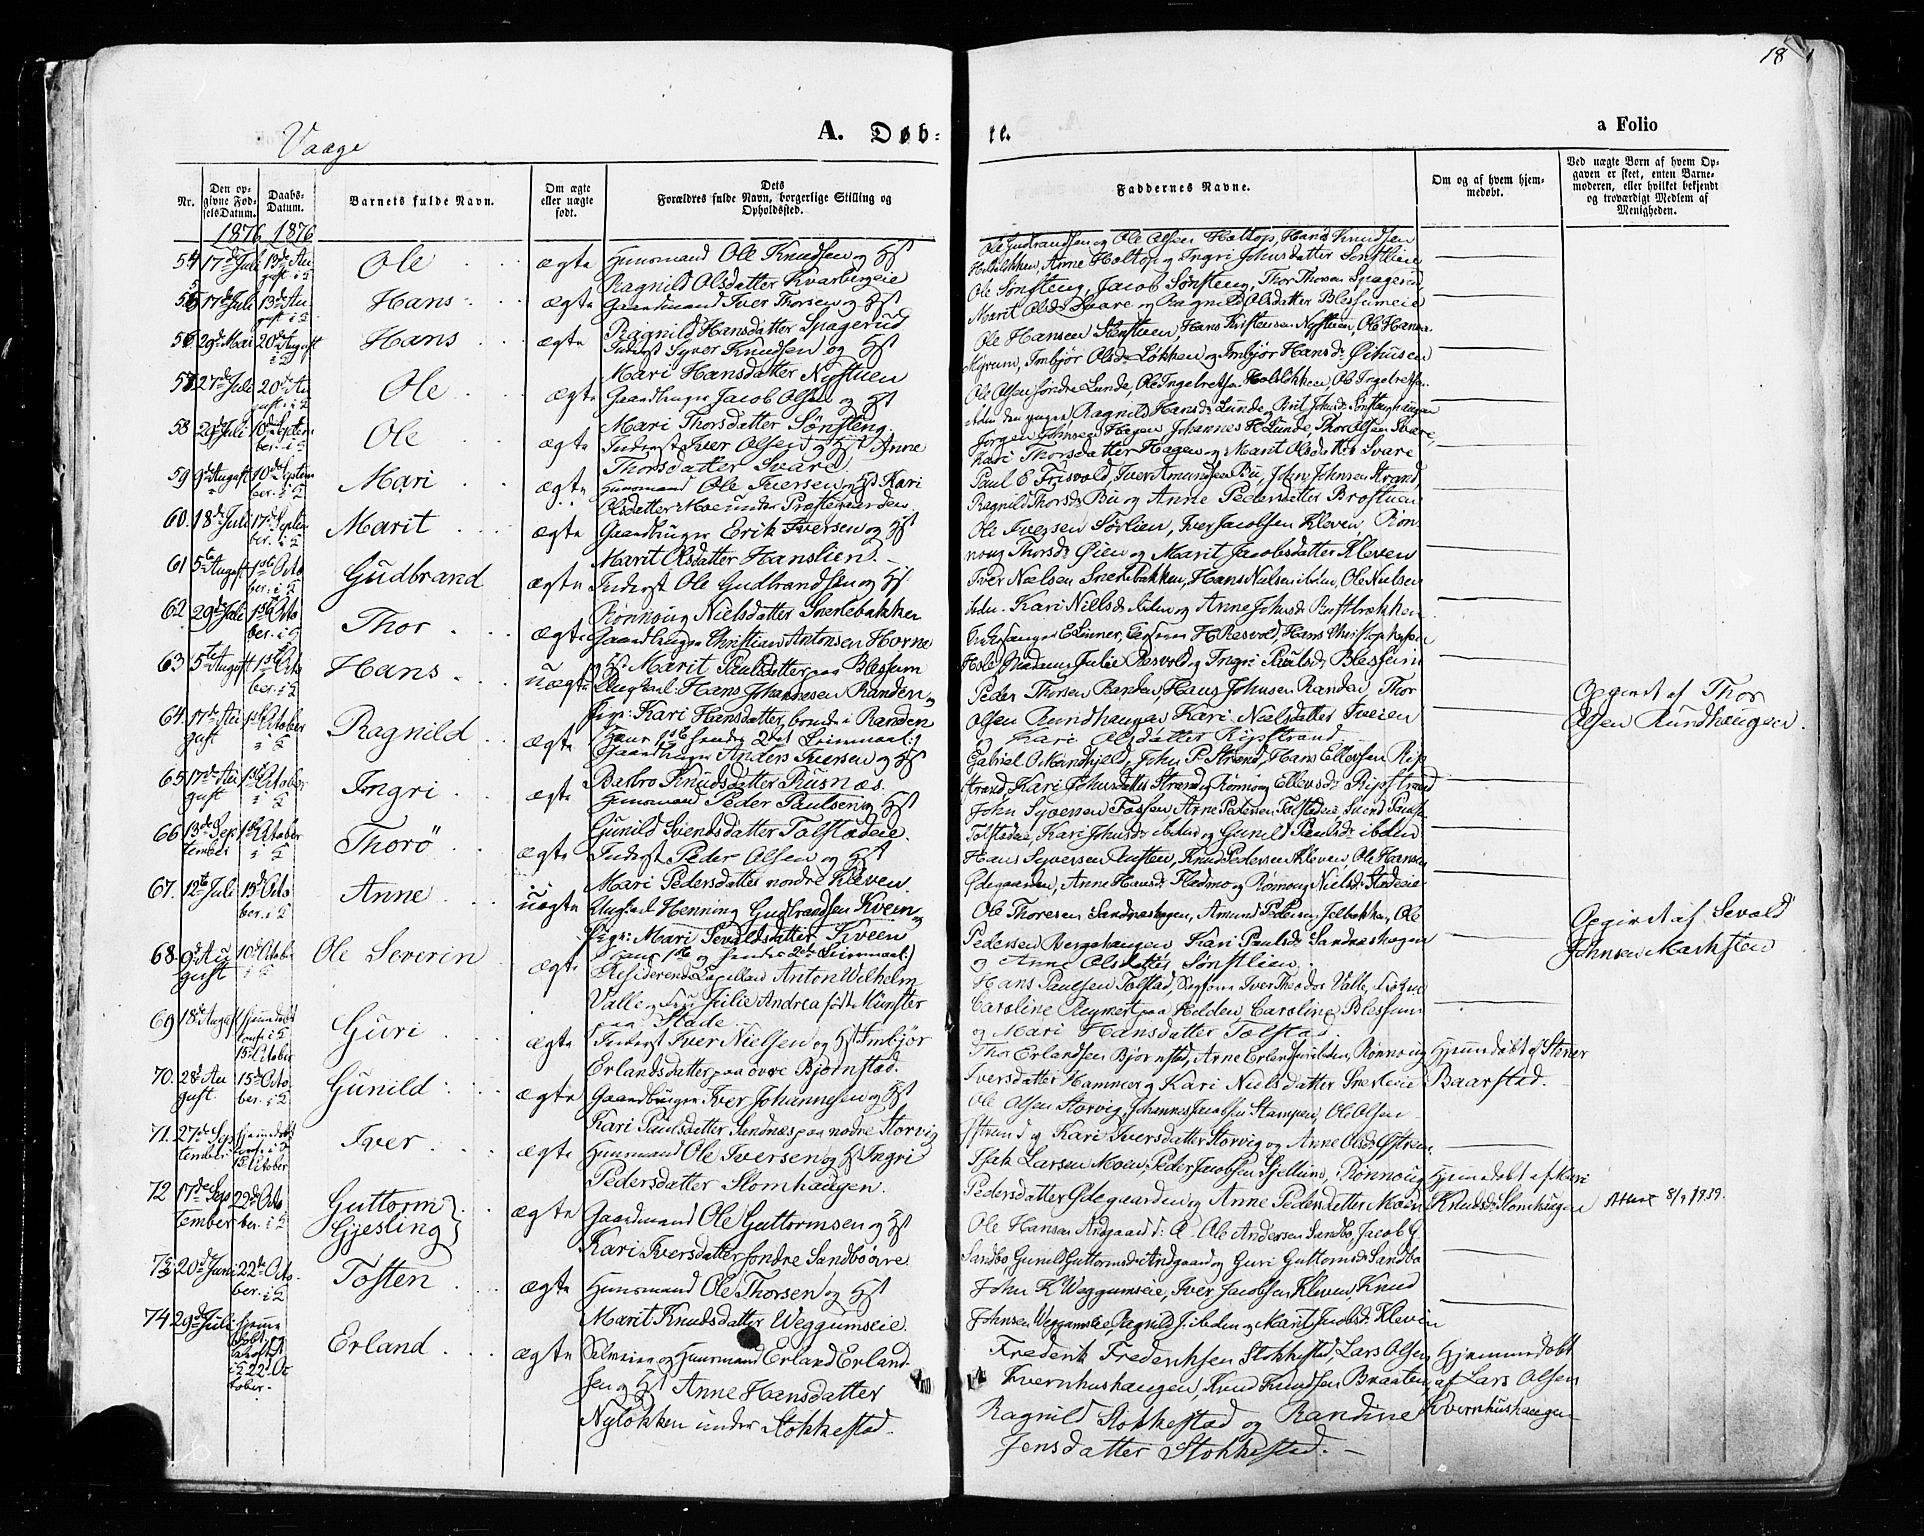 18
Vaage
A. Døb-
te.
a Folio
Nr.
Den op-
givne Fød-
selsDatum.
Daabs-
Datum.
Barnets fulde Navn.
Om ægte
eller uægte
født.
Dets
Forældres fulde Navn, borgerlige Stilling og
Opholdssted.
Faddernes Navne.
Om og af hvem hjem-
medøbt.
Ved uægte Børn af hvem Op-
gaven er skeet, enten Barne-
moderen, eller hvilket bekjendt
og troværdigt Medlem af
Menigheden.
1876 1876
54 17de Juli 13de Au
gust i
Ole
ægte
Huusmand Ole Knudsen og Hst
Ragnild Olsdatter Kvarbergeie
Ole Gudbrandsen og Ole Olsen Holtop, Hans Knudsen
Anne Holtop og Ingri Johnsdatter Sønstlien
55 17de Juli 13de Au
gust i
Hans
ægte
Gaardmand Iver Thorsen og Hst
Ragnild Hansdatter Spagerud
Ole Sønsteng, Jacob Sønsteng, Thor Thorsen Spagerud
Marit Olsd. Svare og Ragnild Olsdatter Blessumeie
56 29de Mai 20de August
Hans
ægte
Inderst Syver Knudsen og Hst
Mari Hansdatter Nystuen
Ole Hansen Stenstuen, Hans Kristensen Nystuen, Ole Hansen
Imbjør Olsd. Løkken og Imbjør Hansd. Øihusen
57 27de Juli 20de Au
gust i
Ole
ægte
Gaardbruger Jacob Olsen og Hst
Mari Thorsdatter Sønsteng
Ole Olsen søndre Lunde, Ole Ingebretsen Holeløkken, Ole Ingebretsen
ibiden den yngre, Ragnild Hansd. Lunde,
58 29de Juli 10de Septem
ber. i
Ole
ægte
Inderst Iver Olsen og Hst Anne
Thorsdatter Svare
Jørgen Johnsen Hagen, Johannes H. Lunde, Thor Olsen Svare,
Kari Thorsdatter Hagen og Marit Olsdatter Svare
59 9de August 10de Septem
ber. i
Mari
ægte
Huusmand Ole Iversen og Hst Kari
Olsdatter Moe under Præstegaarden
Paul E Frisvold, Iver Amundsen Bu, John Johnsen Strand,
Ragnild Thorsd. Bu og Anne Pedersdatter Brostuen
60. 18de Juli 17de Septem
ber. i
Marit
ægte
Gaardbruger Erik Iversen og Hst
Marit Olsdatter Hanslien.
Ole Iversen Sørlien, Iver Jacobsen Kleven Røn-
noug Thorsd. Øien og Marit Jacobsdatter Kleven
61 5te August 1ste Octo
ber. i
Gudbrand
ægte
Inderst Ole Gudbrandsen og Hst
Rønnoug Nielsdatter Snerlebakken
Iver Nielsen Snerlebakken, Hans Nielsen ibiden, Ole Nielsen
ibidn. Kari Nielsd. ibiden og Anne Johnsd.
62. 29de Juli 1ste Octo
ber. i
Thor
ægte
Gaardbruger Christian Antonsen Horne
og Hst Marit Paulsdatter paa Blessum
Kirkesanger E Linner, H Resvold, Hans Christophersen
Hole, Madame Julie Resvold og Ingri Paulsd. Blessum
63 5te August 1ste Octo
ber. i
Hans
uægte
Ungkarl: Hans Johannesen Randen og
Pige: Kari Hansdatter, brude i Randen
(Hans 1ste hendes 2det Leiermaal.)
Peder Thorsen Randen, Hans Johnsen Randen, Thor
Olsen Rundhaugen, Kari Nielsdatter Tveien
Kari Olsdatter Ripstrand.
Opgivet af Thor
Olsen Rundhaugen.
64. 17de Au
gust
1ste October
i
Ragnild
ægte
Gaardbruger Anders Iversen og Hst
Barbro Knudsdatter Rusnæs.
Gabriel O. John P. Strand, Hans Ellevsen Rip
strand, Kari Johnsdatter Strand og Rønnog Ellevsd. Ripstrand
65 17de Au
gust
1ste October
i
Ingri
ægte
Huusmand Peder Paulsen og Hst
Gunild Svendsdatter Tolstadeie.
John Syversen Fossen, Arne Pedersen Tolstadeie, Svend Pauls.
Tolstadeie, Kari Johnsd. ibiden og Gunild Paulsd. ibiden
66 13de Sep
tember
1ste October
i
Thorø
ægte
Inderst Peder Olsen og Hst
Mari Pedersdatter nordre Kleven.
Hans Syversen, Knud Pedersen Kleven, Ole Hansen
Ødegaarden, Anne Hansd. Flatmo og Rønnoug Nielsd.
67. 12te Juli 15de Octo
ber. i
Anne
uægte
Ungkarl Henning Gudbrandsen Kveen og
Pige: Mari Sevaldsdatter Kveen
(hans 1ste og hendes 2det Leiermaal.)
Ole Thoresen Sandneshagen, Amund Pedersen, Ole
Pedersen Bergehaugen, Kari Paulsd. Sandneshagen
og Anne Olsdatter Sønstlien.
Opgivet af Sevald
Johnsen Markstien
68. 9de Au
gust
10de October
i
Ole Severin
ægte
Residerende Capellan Anton Wilhelm
Valle og Fru Julie Andrea født Münster
paa Stade.
Hans Paulsen Tolstad, Iver Theodor Valle, Frøken
Caroline Reymert paa Helden, Caroline Blessum
og Mari Hansdatter Tolstad.
69 18de August hjemdøbt
conf. i
15de October
Guri
ægte
Inderst Iver Nielsen og Hst Imbjør
Erlandsdatter paa øvre Bjørnstad.
Thor Erlandsen Bjørnstad, Arne Erlandsen ibiden, Rønnoug
Iversdatter Hammer og Kari Nielsdatter Snerleie
Hjemmedøbt af Stener
Baarstad.
70. 28de Au
gust.
15de Octo
ber. i
Gunild
ægte
Gaardbruger Iver Johannesen og Hst
Kari Paulsdatter Sandnes paa nedre Storvig
Ole Olsen Storvig, Johannes Jacobsen Stampen, Ole Olsen
og Kari Iversdatter Storvig og Anne Olsd.
71. 27de Sep
tember.
hjemdøbt
conf. i
15de October
Iver
ægte
Huusmand Ole Iversen og Hst Ingri
Pedersdatter Slomhaugen.
Isak Larsen Moen, Peder Jacobsen Sjellum, Rønnoug
Pedersdatter Ødegaarden og Anne Pedersdatter Moen
Hjemmedøbt af Mari
Knudsd. Slomhaugen
Attest 8/9 1939.
72 17de Sep
tember
22de Octo
ber. i
Guttorm
Gjesling
ægte
Gaardmand Ole Guttormsen og Hst
Kari Iversdatter søndre Sandboøvre
Ole Hansen Andgaard, Ole Andersen Sandbo, Jacob G.
Sandbo, Gunild Guttormsd. Andgaard og Guri Guttormsd. Sandbo
73 20de Juni 22de Octo
ber. i
Tosten
ægte
Huusmand Ole Thorsen og Hst
Marit Knudsdatter Weggumseie.
John K Weggumseie, Iver Jacobsen Kleven, Knud
Johnsen Weggumseie, Ragnild J. ibiden og Marit Jacobsd. Kleven
74. 29de Juli hjemme
døbt og
22 Oc
tober.
Erland
ægte
Selveier og Huusmand Erland Erland-
sen og Hst Anne Hansdatter
Nyløkken under Stokkestad.
Frederik Frederiksen Stokkestad, Lars Olsen
Kvernhushaugen, Knud Knudsen Braaten,
Ragnild Stokkestad og Randine
Jensdatter Stokkestad.
Hjemmedøbt
af Lars Olsen
Kvernhushaugen